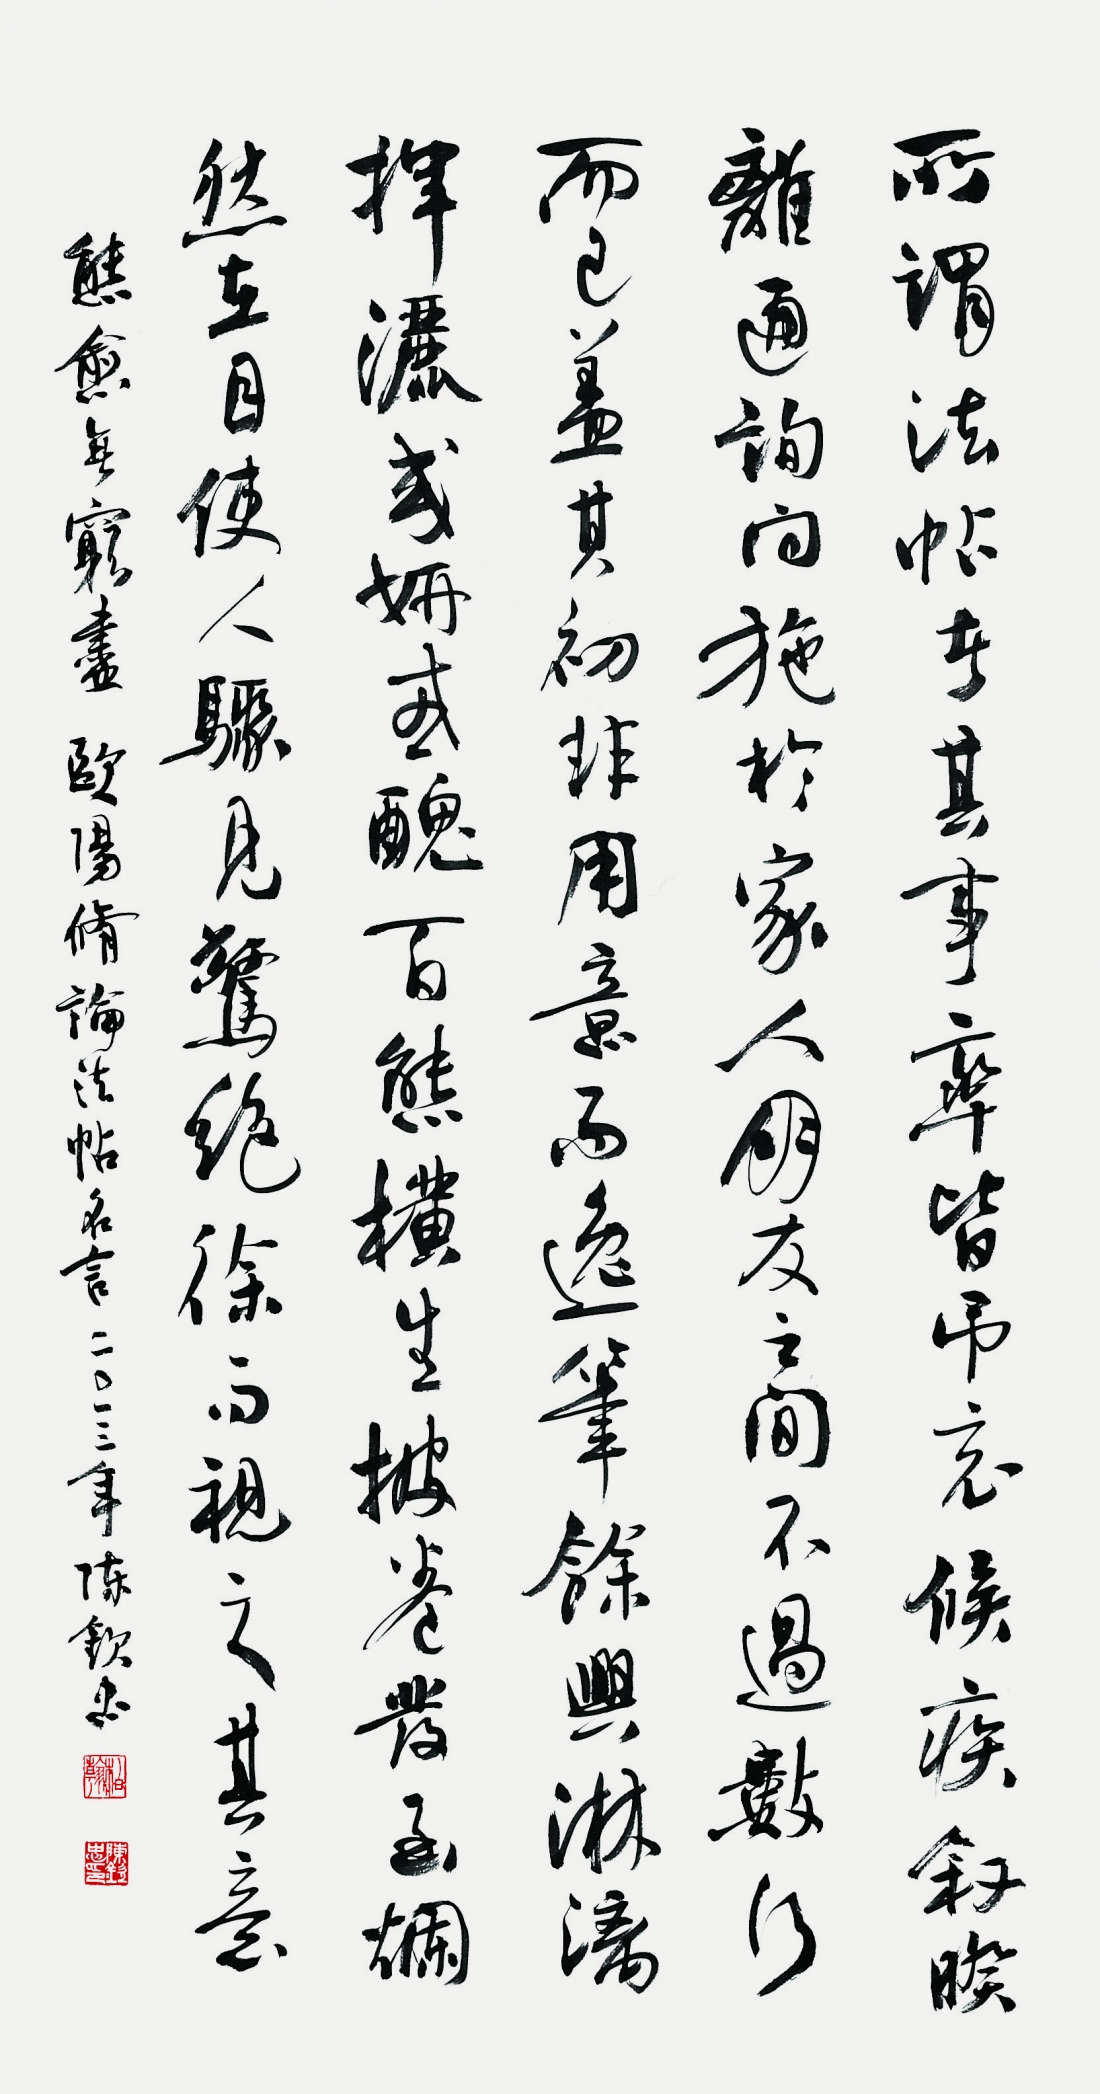 所謂法帖者其事率皆吊哀候疾叙睽
離通詢问施於家人朋友之间不過數行
而已蓋其初非用意而逸筆餘興淋漓
揮灑或妍或醜百態横生披卷發函爛
然在目使人驟見驚絶徐而視之其意
態愈無窮盡 歐陽脩論法帖名言二〇一三年陈钦忠